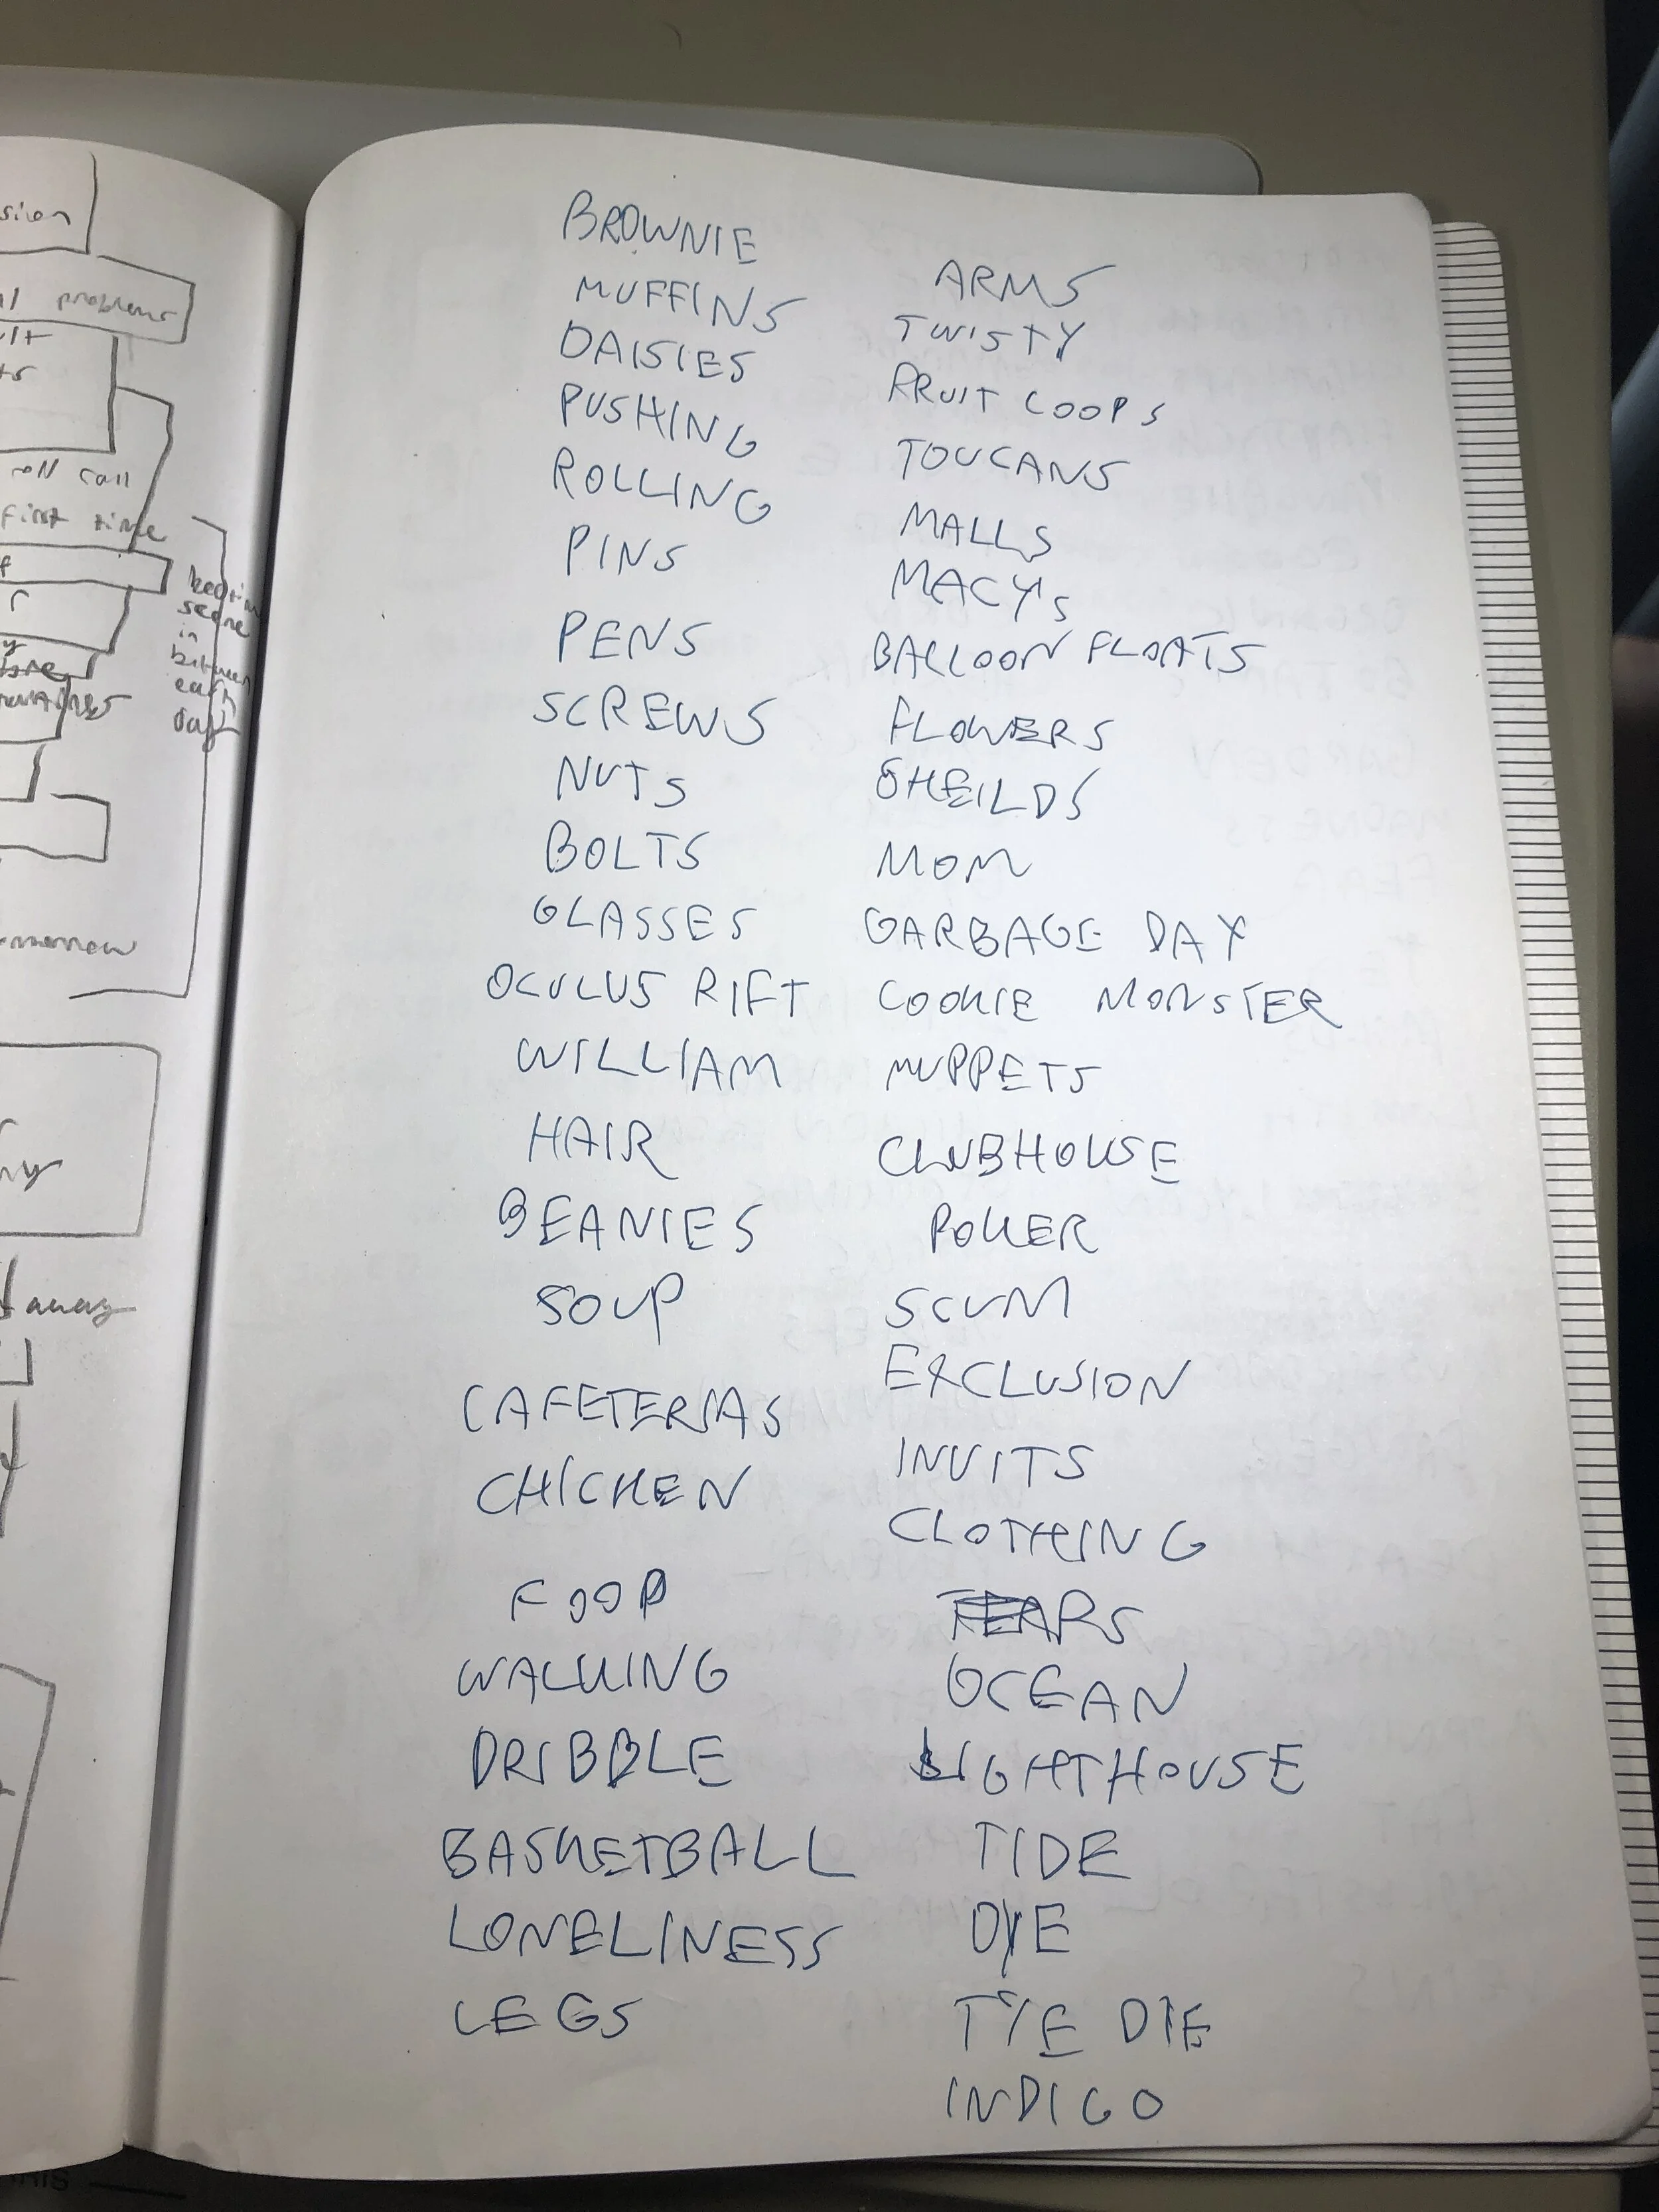 sion
problems
on call
first time
scene
in
between
each
day
away
BROWNIE
MUFFINS
DAISIES
PUSHING
ROLLING
PINS
PENS
SCREWS
NUTS
BOLTS
GLASSES
OCULUS RIFT
WILLIAM
HAIR
BEANIES
SOUP
CAFETERIAS
CHICKEN
FOOP
WALKING
DRIBBLE
BASKETBALL
LONELINESS
LEGS
ARMS
TWISTY
FRUIT LOOPS
TOUCANS
MALLS
MACYs
BALLOON FLOATS
FLOWERS
SHEILDS
MOM
GARBAGE DAY
COOKIE MONSTER
MUPPETS
CLUBHOUSE
POKER
SCUM
EXCLUSION
INVITS
CLOTHING
TEARS
OCEAN
LIGHTHOUSE
TIDE
DYE
TYE DIE
INDIGO